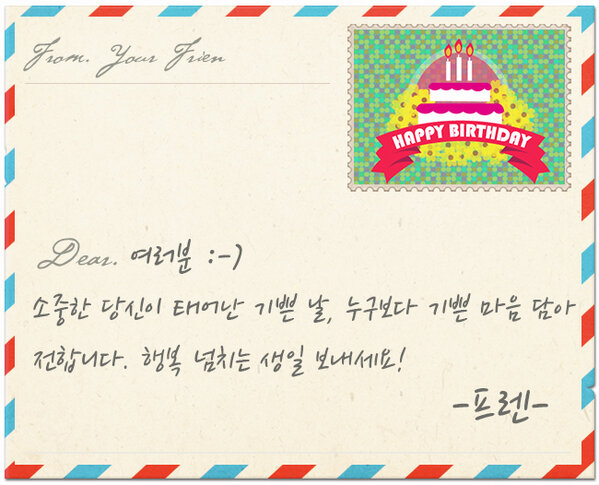 From. Your Frien
HAPPY BIRTHDAY
Dear. 여러분 :-)
소중한 당신이 태어난 기쁜 날, 누구보다 기쁜 마음 담아
전합니다. 행복 넘치는 생일 보내세요!
-프렌-